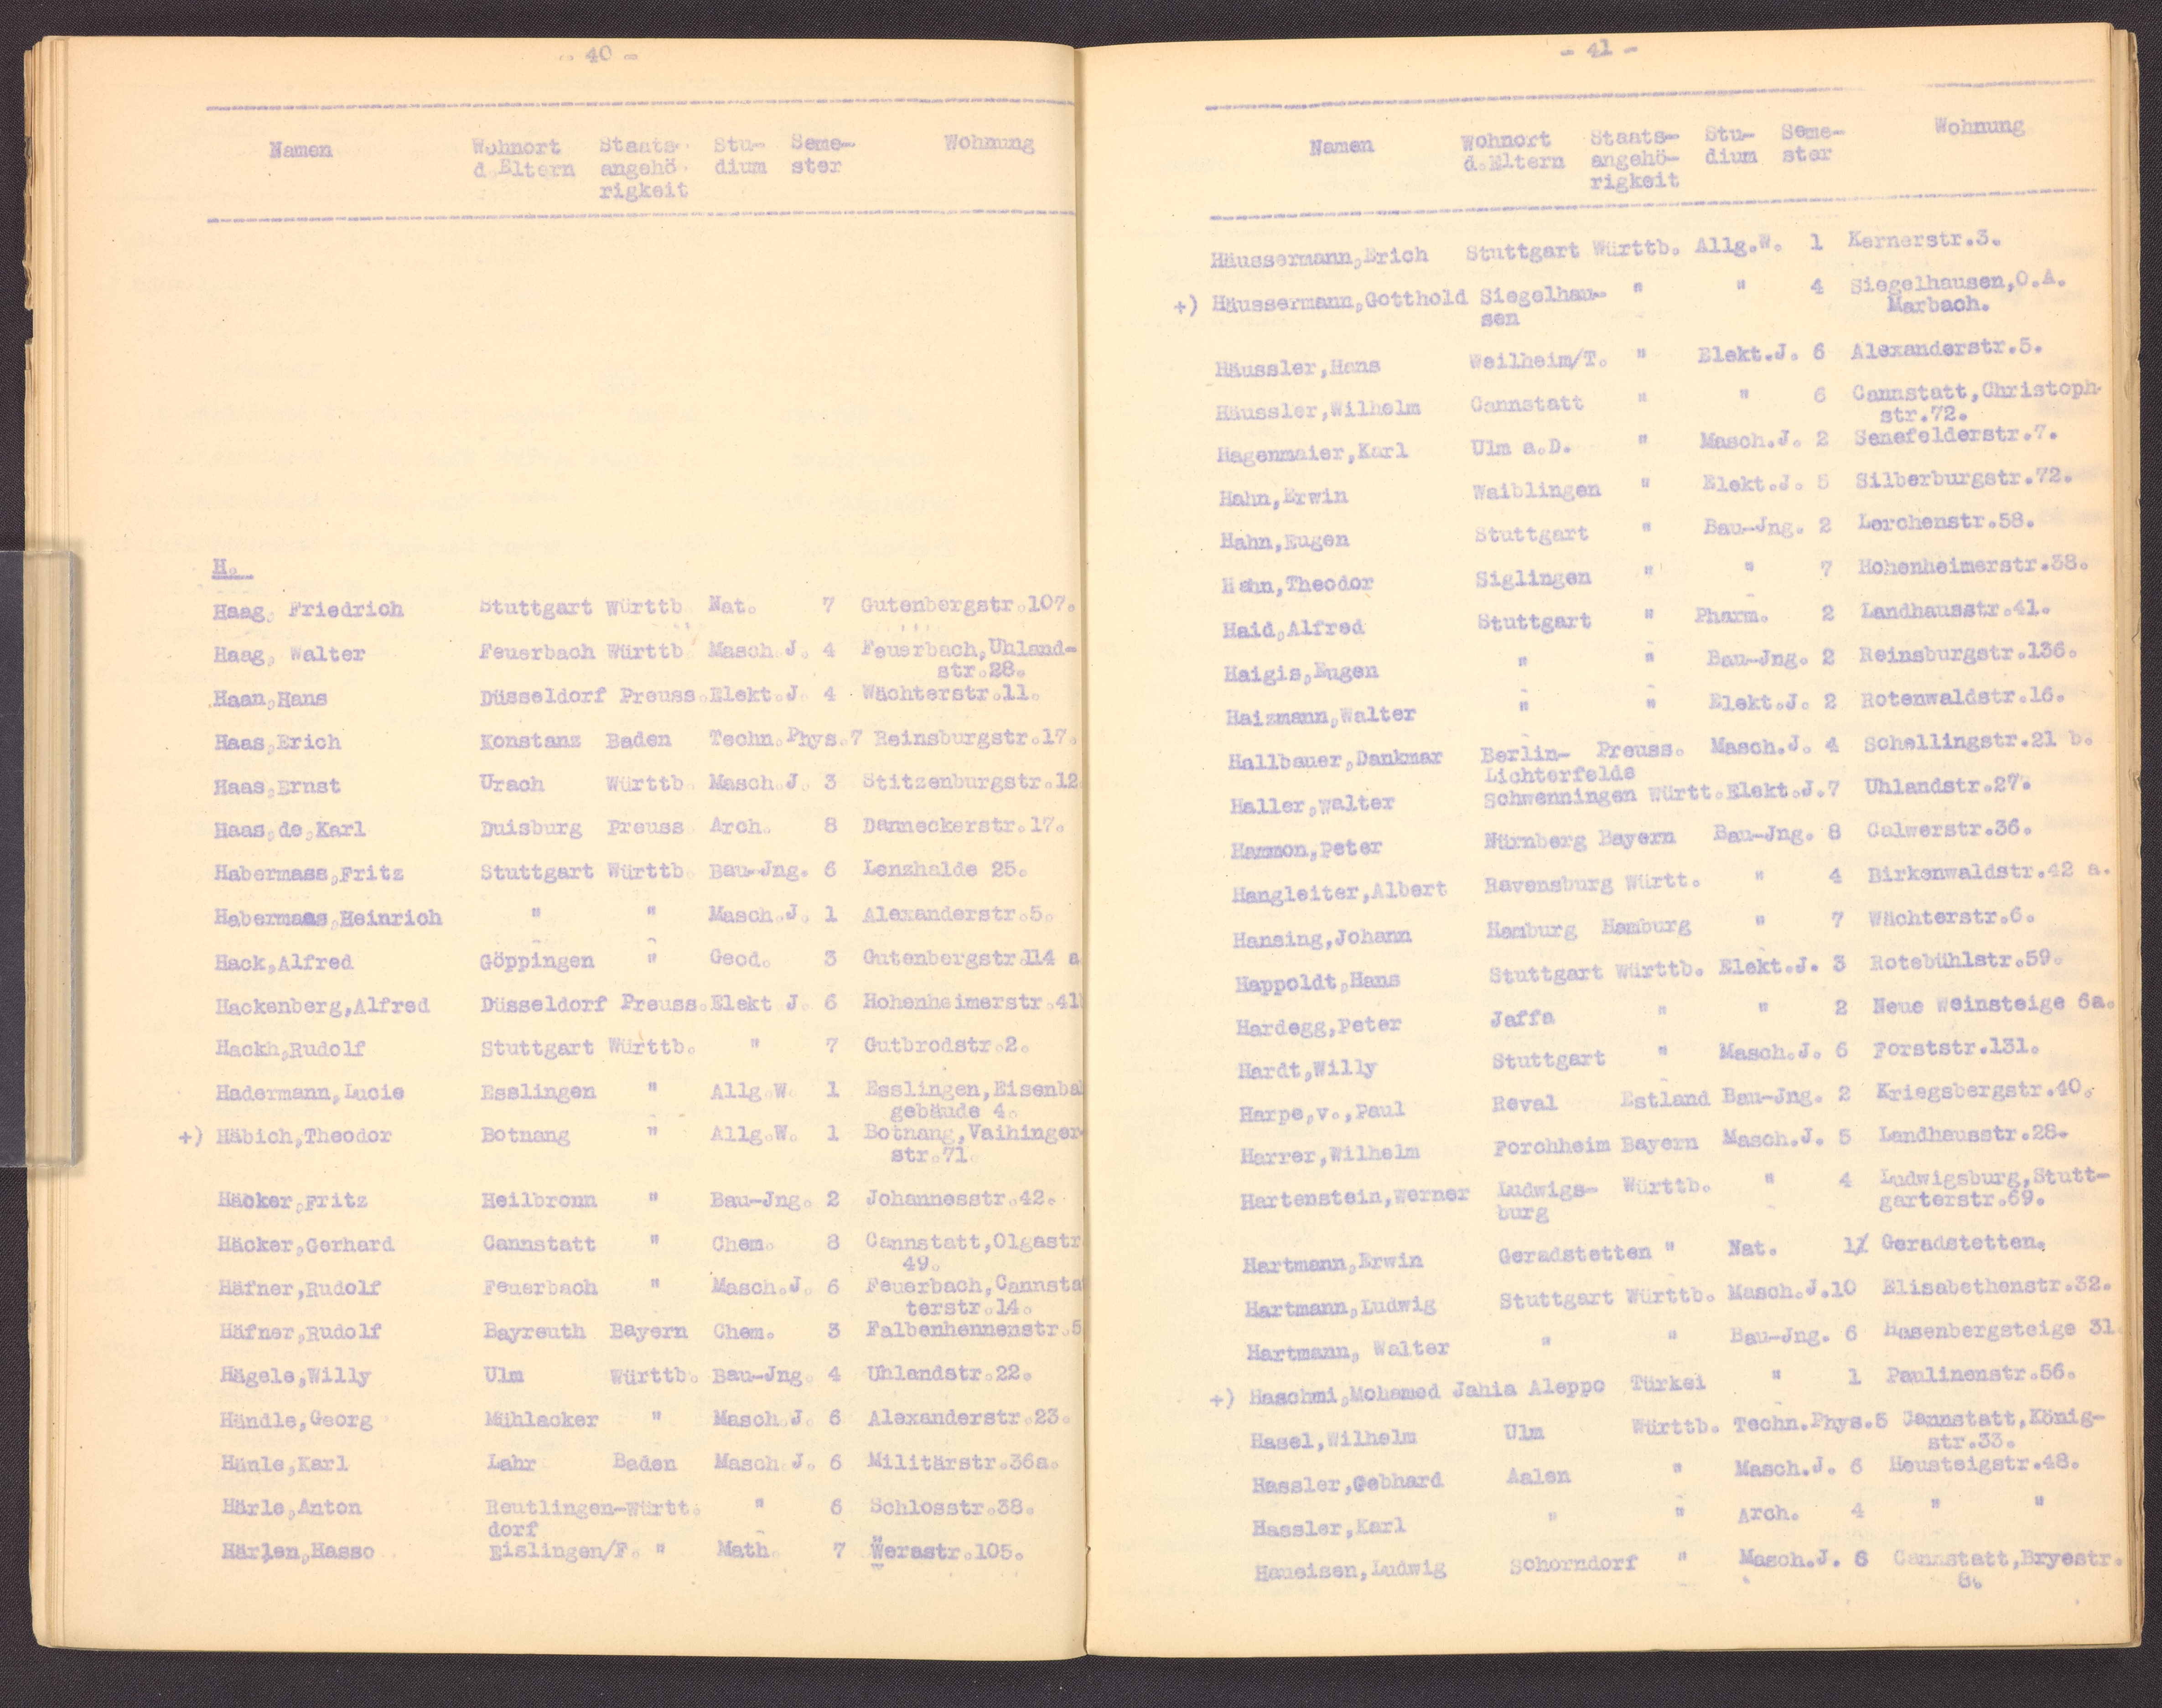 - 40 -
Namen Wohnort Staats- Stu- Seme- Wohnung
d.Eltern angehö- dium ster
rigkeit
H.
Haag, Friedrich Stuttgart Württb. Nat. 7 Gutenbergstr.107.
Haag, Walter Feuerbach Württb. Masch.J. 4 Feuerbach,Uhland-
str.28.
Haan,Hans Düsseldorf Preuss.Elekt.J. 4 Wächterstr.11.
Haas,Erich Konstanz Baden Techn.Phys.7 Reinsburgstr.17.
Haas,Ernst Urach Württb. Masch.J. 3 Stitzenburgstr.12
Haas,de,Karl Duisburg Preuss. Arch. 8 Danneckerstr.17.
Habermass,Fritz Stuttgart Württb. Bau-Jng. 6 Lenzhalde 25.
Habermaas,Heinrich " " Masch.J. 1 Alexanderstr.5.
Hack,Alfred Göppingen " Geod. 3 Gutenbergstr.114 a
Hackenberg,Alfred Düsseldorf Preuss.Elekt J. 6 Hohenheimerstr.41
Hackh,Rudolf Stuttgart Württb. " 7 Gutbrodstr.2.
Hadermann,Lucie Esslingen " Allg.W. 1 Esslingen,Eisenba
gebäude 4.
+) Häbich,Theodor Botnang " Allg.W. 1 Botnang,Vaihinger-
str.71.
Häcker,Fritz Heilbronn " Bau-Jng. 2 Johannesstr.42.
Häcker,Gerhard Cannstatt " Chem. 8 Cannstatt,Olgastr.
49.
Häfner,Rudolf Feuerbach " Masch.J. 6 Feuerbach,Cannsta
terstr.14.
Häfner,Rudolf Bayreuth Bayern Chem. 3 Falbenhennenstr.5
Hägele,Willy Ulm Württb. Bau-Jng. 4 Uhlandstr.22.
Händle,Georg Mühlacker " Masch.J. 6 Alexanderstr.23.
Hänle,Karl Lahr Baden Masch.J. 6 Militärstr.36a.
Härle,Anton Reutlingen-Württ. " 6 Schlosstr.38.
dorf
Härlen,Hasso Eislingen/F. " Math. 7 Werastr.105.
- 41 -
Namen Wohnort Staats- Stu- Seme- Wohnung
d.Eltern angehö- dium ster
rigkeit
Häussermann,Erich Stuttgart Württb. Allg.W. 1 Kernerstr.3.
+) Häussermann,Gotthold Siegelhau- " " 4 Siegelhausen,O.A.
sen Marbach.
Häussler,Hans Weilheim/T. " Elekt.J. 6 Alexanderstr.5.
Häussler,Wilhelm Cannstatt " " 6 Cannstatt,Christoph-
str.72.
Hagenmaier,Karl Ulm a.D. " Masch.J. 2 Senefelderstr.7.
Hahn,Erwin Waiblingen " Elekt.J. 5 Silberburgstr.72.
Hahn,Eugen Stuttgart " Bau-Jng. 2 Lerchenstr.58.
Hahn,Theodor Siglingen " " 7 Hohenheimerstr.38.
Haid,Alfred Stuttgart " Pharm. 2 Landhausstr.41.
Haigis,Eugen " " Bau-Jng. 2 Reinsburgstr.136.
Haizmann,Walter " " Elekt.J. 2 Rotenwaldstr.16.
Hallbauer,Dankmar Berlin- Preuss. Masch.J. 4 Schellingstr.21 b.
Lichterfelde
Haller,Walter Schwenningen Württ.Elekt.J.7 Uhlandstr.27.
Hammon,Peter Nürnberg Bayern Bau-Jng. 8 Calwerstr.36.
Hangleiter,Albert Ravensburg Württ. " 4 Birkenwaldstr.42 a.
Hansing,Johann Hamburg Hamburg " 7 Wächterstr.6.
Happoldt,Hans Stuttgart Württb. Elekt.J. 3 Rotebühlstr.59.
Hardegg,Peter Jaffa " " 2 Neue Weinsteige 6a.
Hardt,Willy Stuttgart " Masch.J. 6 Forststr.131.
Harpe,v.,Paul Reval Estland Bau-Jng. 2 Kriegsbergstr.40.
Harrer,Wilhelm Forchheim Bayern Masch.J. 5 Landhausstr.28.
Hartenstein,Werner Ludwigs- Württb. " 4 Ludwigsburg,Stutt-
burg garterstr.69.
Hartmann,Erwin Geradstetten " Nat. 1 Geradstetten.
Hartmann,Ludwig Stuttgart Württb. Masch.J.10 Elisabethenstr.32.
Hartmann, Walter " " Bau-Jng. 6 Hasenbergsteige 31.
+) Haschmi,Mohamed Jahia Aleppo Türkei " 1 Paulinenstr.56.
Hasel,Wilhelm Ulm Württb. Techn.Phys.5 Cannstatt,König-
str.33.
Hassler,Gebhard Aalen " Masch.J. 6 Heusteigstr.48.
Hassler,Karl " " Arch. 4 " "
Haueisen,Ludwig Schorndorf " Masch.J. 6 Cannstatt,Bryestr.
8.